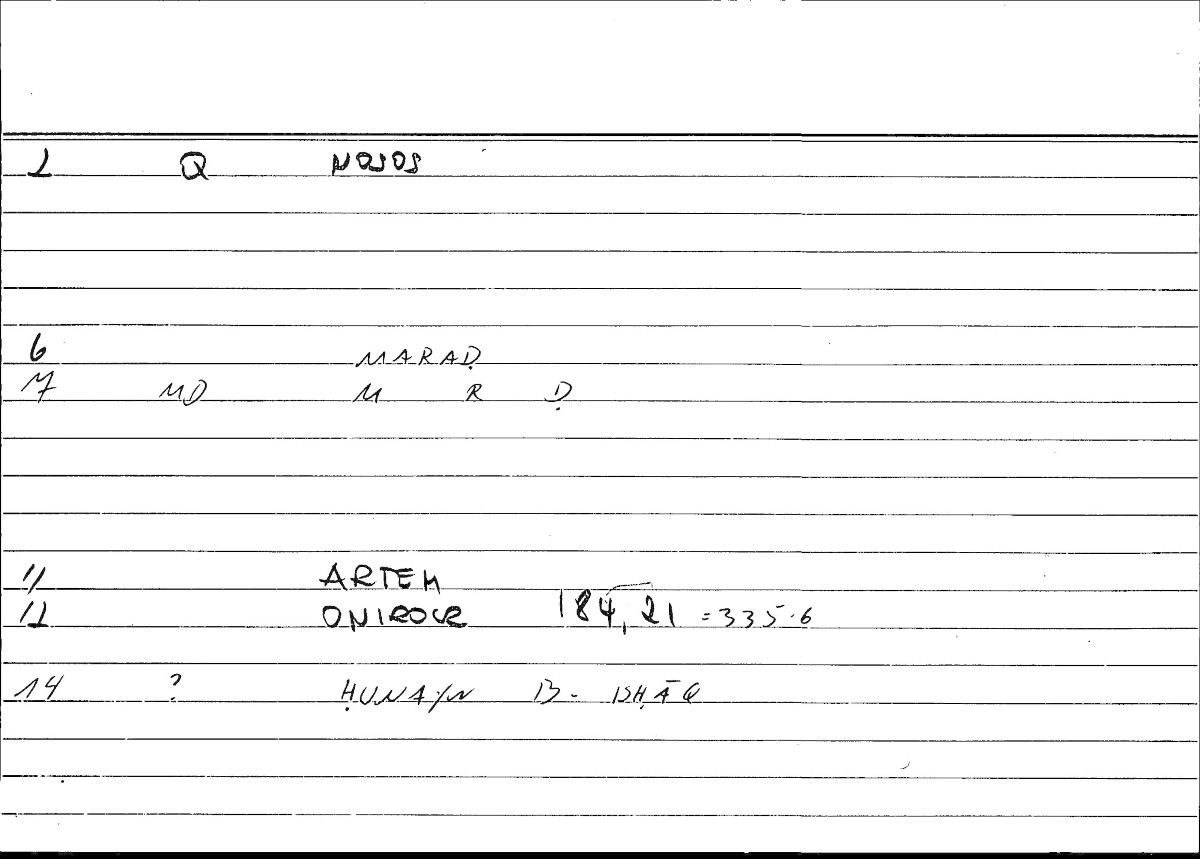 1 Q NOSOS
6 MARAḌ
7 MD M R Ḍ
11 ARTEM
12 ONIROCR 184,21 =335.6
14 ? ḤUNAYN B. ISḤĀQ